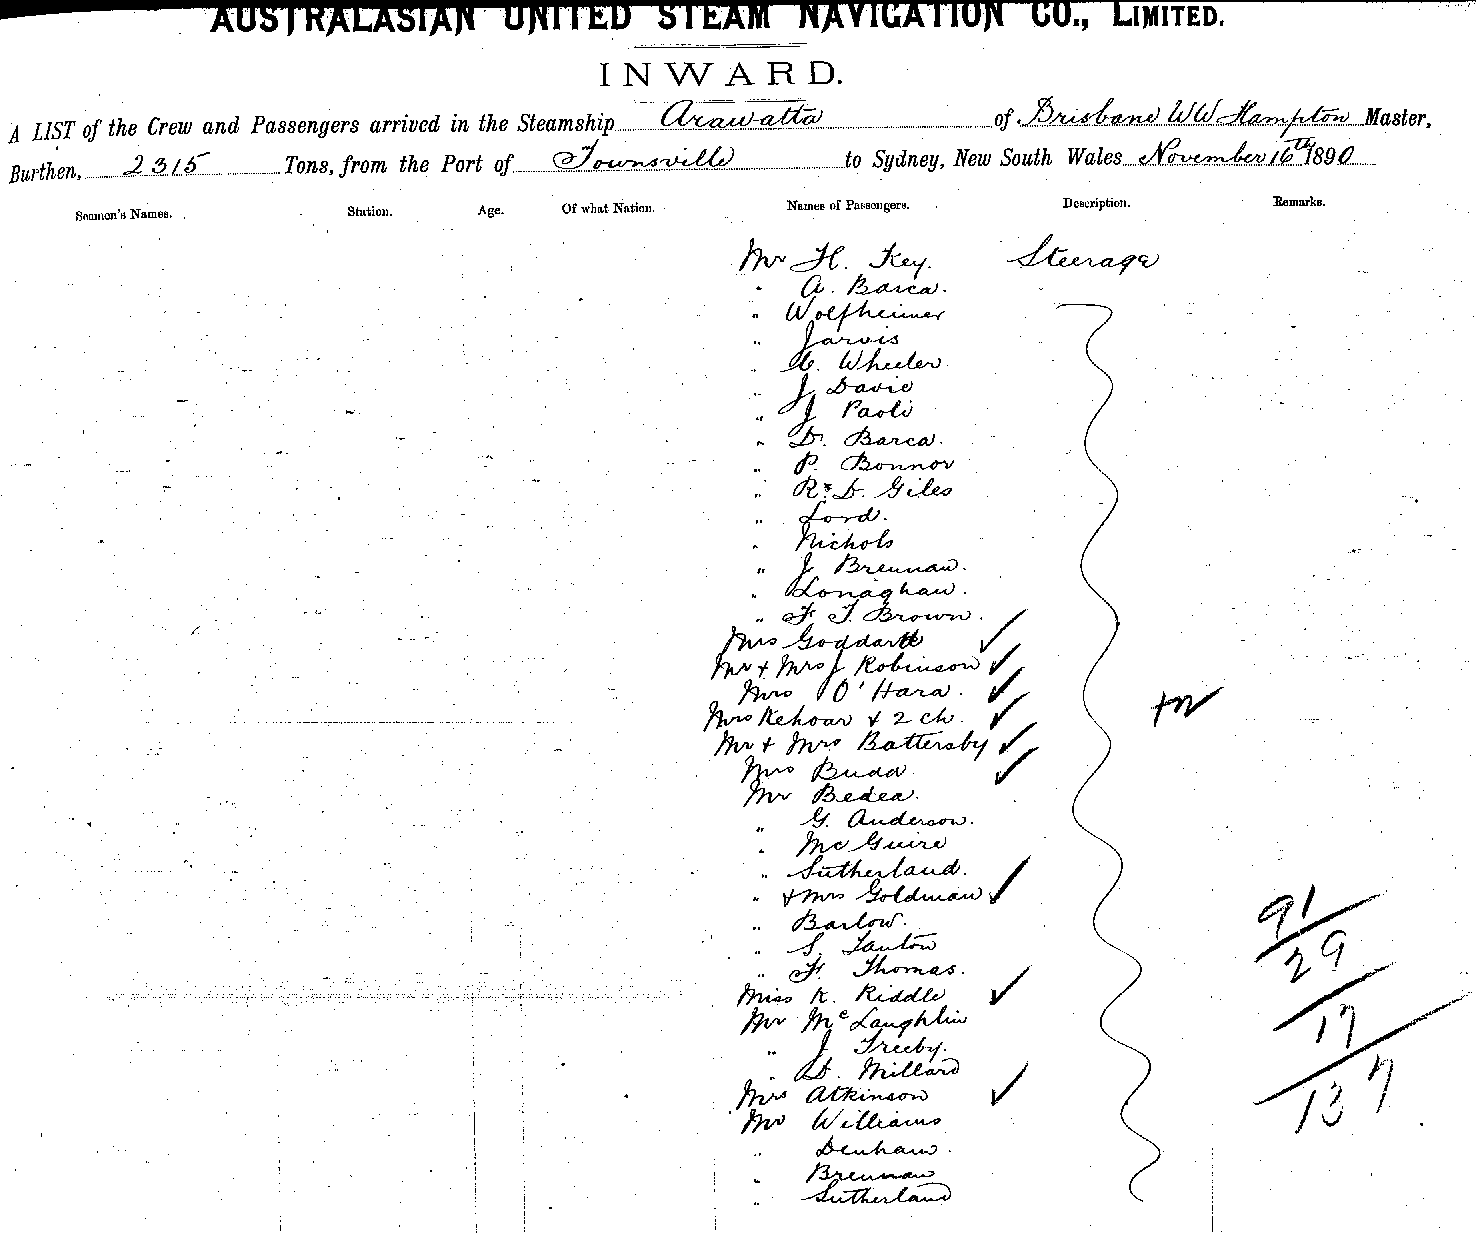 AUSTRALASIAN UNITED STEAM NAVIGATION CO., LIMITED.
INWARD.
A LIST of the Crew and Passengers arrived in the Steamship Arawatta of Brisbane WW Hampton Master,
Burthen, 2315 Tons, from the Port of Townsville to Sydney, New South Wales November 16th 1890
Seamen's Names. Station. Age. Of what Nation. Names of Passengers. Description. Remarks.
Mr H. Key. Steerage
" A. Barca.
" Wolfheimer
" Jarvis
" C. Wheeler
" J Davie
" J Paoli
" D. Barca.
" P. Bonnor
" R. D. Giles
" Lord.
" Nichols
" J Brennan.
" Lonaghan.
" F. T. Brown.
Mrs Goddard
Mr + Mrs J Robinson
Mrs O'Hara.
Mrs Kehoar + 2 ch.
Mr + Mrs Battersby
Mrs Budd
Mr Bedea.
" G. Anderson.
" Mc Guire
" Sutherland.
" + Mrs Goldman
" Barlow.
" S. Tanton
" F. Thomas.
Miss K. Riddle
Mr Mc Laughlin
" J Treeby.
" D. Millard
Mrs Atkinson
Mr Williams
" Denham.
" Brennan
" Sutherland
91
29
17
137